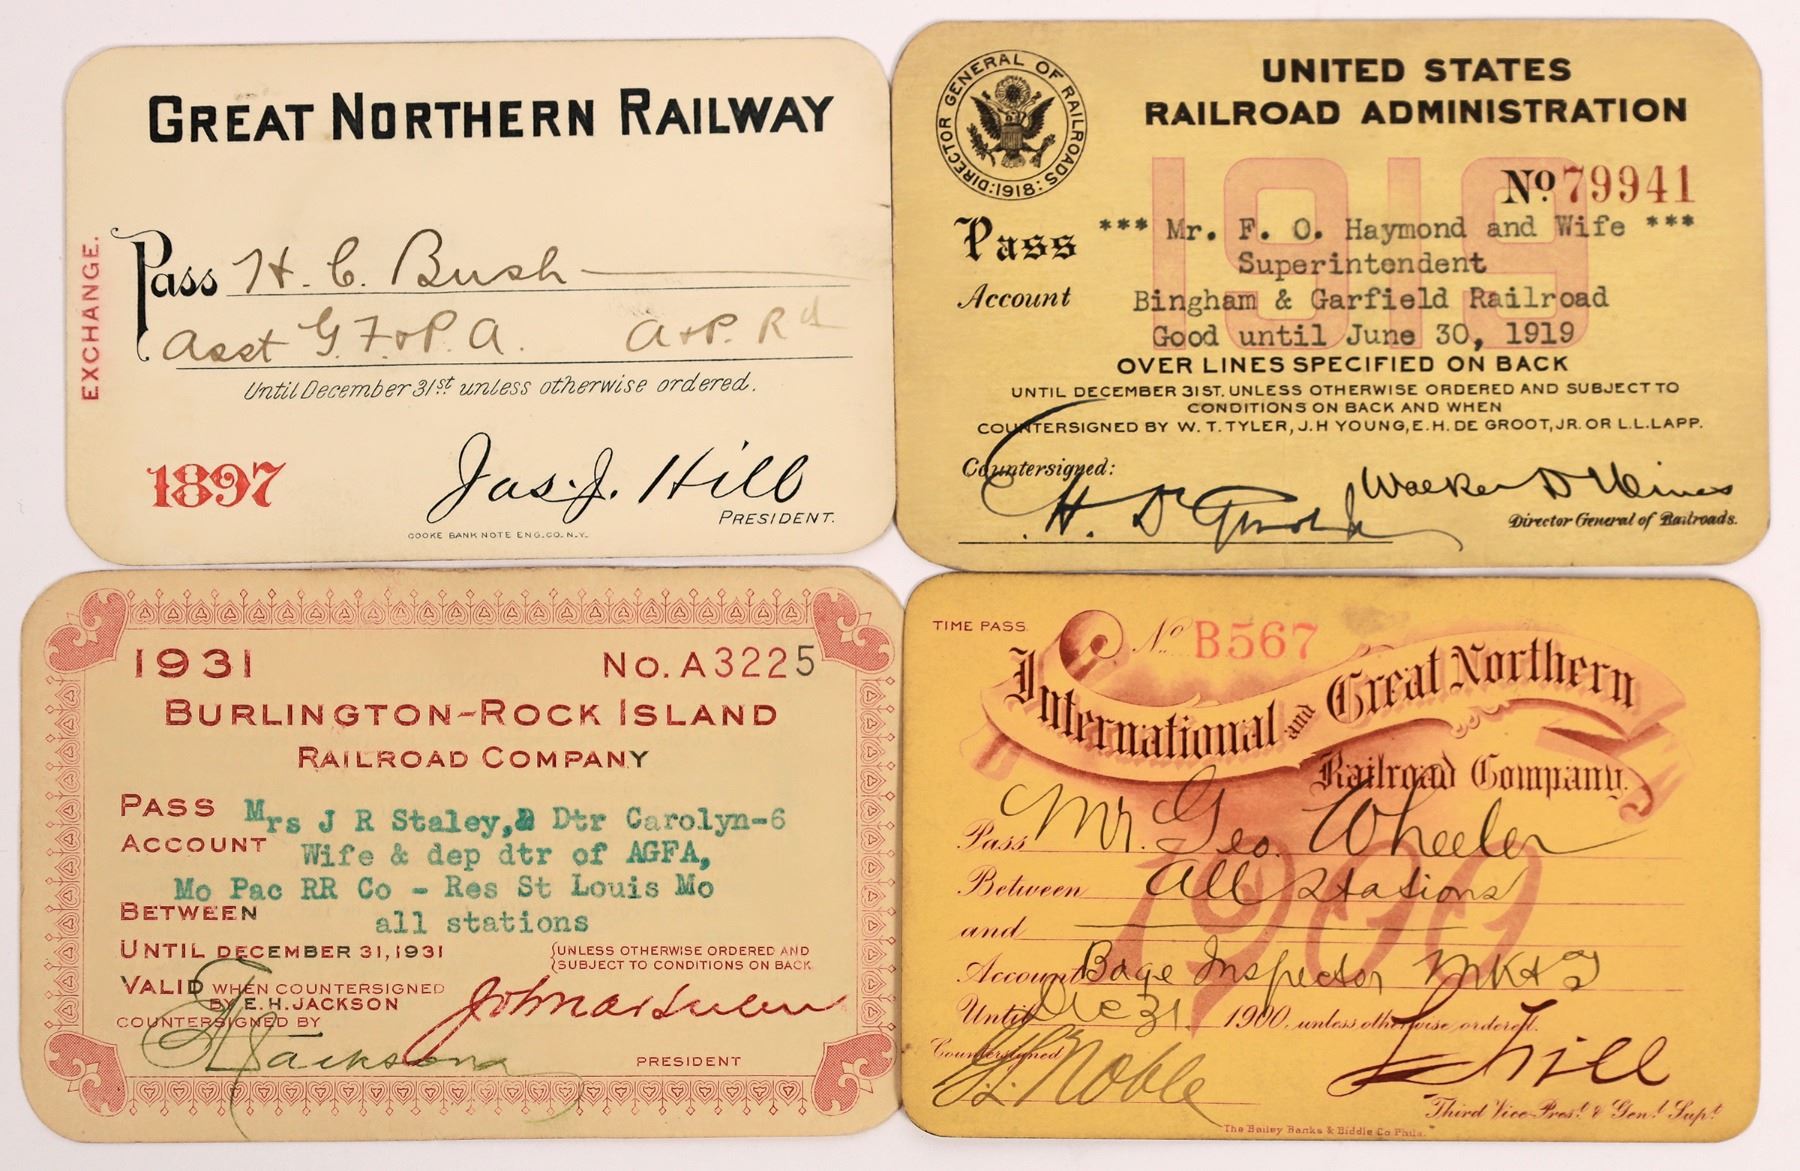 GREAT NORTHERN RAILWAY
EXCHANGE.
Pass H. C. Bush
Asst G. F. & P. A. A & P. Rd
Until December 31st unless otherwise ordered.
1897
Jas. J. Hill
PRESIDENT.
COOKE BANK NOTE ENG. CO. N.Y.
DIRECTOR GENERAL OF RAILROADS :1918:
UNITED STATES
RAILROAD ADMINISTRATION
1919
No. 79941
Pass *** Mr. F. O. Haymond and Wife ***
Superintendent
Account Bingham & Garfield Railroad
Good until June 30, 1919
OVER LINES SPECIFIED ON BACK
UNTIL DECEMBER 31ST. UNLESS OTHERWISE ORDERED AND SUBJECT TO
CONDITIONS ON BACK AND WHEN
COUNTERSIGNED BY W. T. TYLER, J. H YOUNG, E. H. DE GROOT, JR. OR L. L. LAPP.
Countersigned:
Walker D Hines
Director General of Railroads.
1931 No. A3225
BURLINGTON-ROCK ISLAND
RAILROAD COMPANY
PASS Mrs J R Staley,& Dtr Carolyn-6
ACCOUNT Wife & dep dtr of AGFA,
Mo Pac RR Co - Res St Louis Mo
BETWEEN all stations
UNTIL DECEMBER 31, 1931 {UNLESS OTHERWISE ORDERED AND
SUBJECT TO CONDITIONS ON BACK
VALID WHEN COUNTERSIGNED
BY E. H. JACKSON
COUNTERSIGNED BY
E H Jackson
PRESIDENT
TIME PASS. No. B567
International and Great Northern
Railroad Company.
1900
Pass Mr. Geo. Wheeler
Between All Stations
and
Account Bage Inspector MK&T
Until Dec 31 1900. unless otherwise ordered.
Countersigned
Noble
Third Vice-Prest. & Genl. Supt.
The Bailey Banks & Biddle Co Phila.